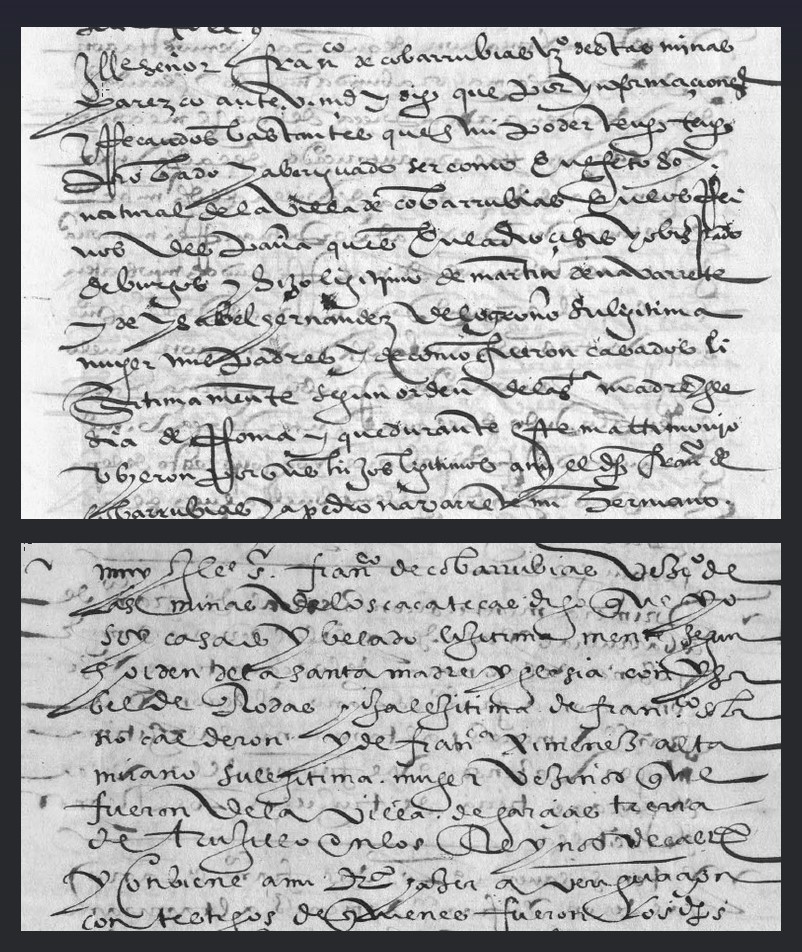 Ylle señor franco de cobarrubias vzo destas minas
Parezco ante v.md y digo que por ynformaciones
Recaudos bastantes que en mi poder tengo tengo
probado y aberiguado ser como soy
natural de la Villa de cobarrubias en los Rei
nos despaña ques en la diocisis y obispado
de burgos y hijo legitimo de martin de navarrete
y de ysabel hernandez de logroño su legitima
muger mis padres y de como fueron casados li
Gitimamente segun orden de la sta madre ygle
sia de Roma y que durante este matrimonio
Vbieron por sus hijos ligitimos a mi el dho franco de
cobarrubias y a pedro navarrete mi hermano.
muy Ylle s.r franco de cobarrubias Vezo de
las minas de los cacatecas digo que yo
soy casado y belado lijitima mente segun
orden de la santa madre yglesia con ysa
bel de Rodas hija lejitima de franco
calderon y de franca Ximenez alta
mirano su lejitima muger Vezinos que
fueron de la Villa de garcias
de trujillo en los Reynos de
y Conbiene a mi
con testigos de quienes fueron los dhos